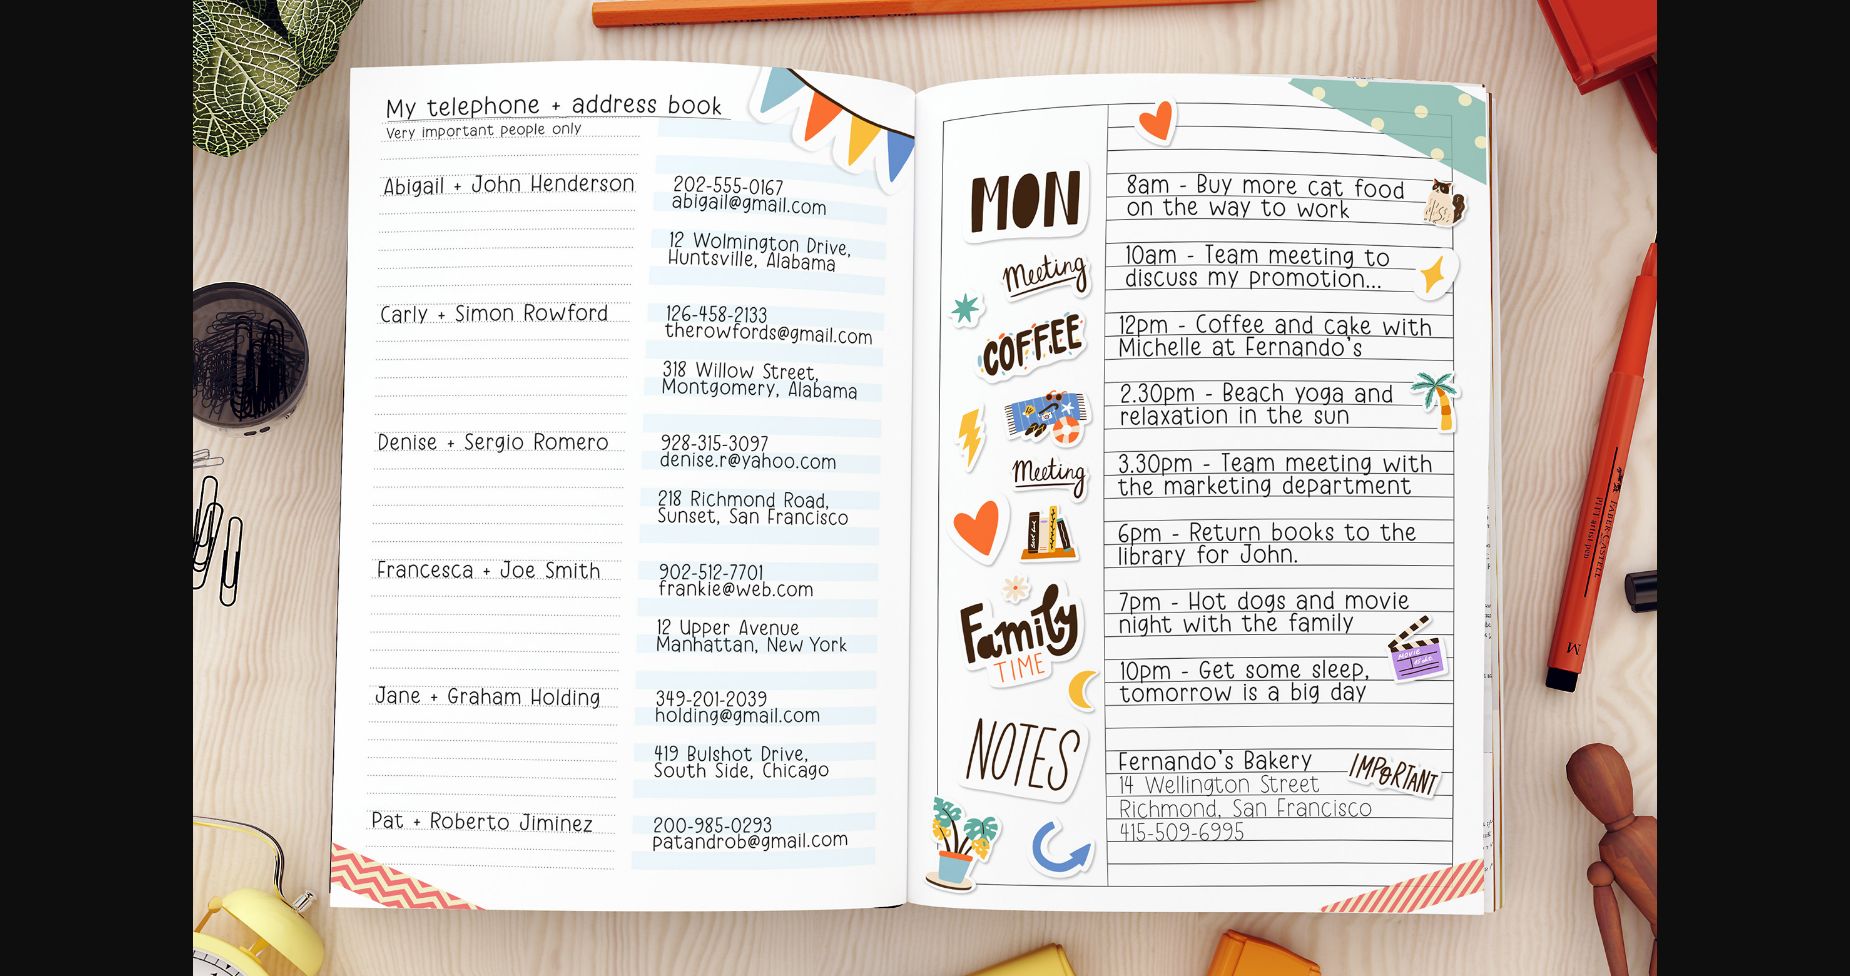 My telephone + address book
Very important people only
Abigail + John Henderson
202-555-0167
abigail@gmail.com
12 Wolmington Drive,
Huntsville, Alabama
Carly + Simon Rowford
126-458-2133
therowfords@gmail.com
318 Willow Street,
Montgomery, Alabama
Denise + Sergio Romero
928-315-3097
denise.r@yahoo.com
218 Richmond Road,
Sunset, San Francisco
Francesca + Joe Smith
902-512-7701
frankie@web.com
12 Upper Avenue
Manhattan, New York
Jane + Graham Holding
349-201-2039
holding@gmail.com
419 Bulshot Drive,
South Side, Chicago
Pat + Roberto Jiminez
200-985-0293
patandrob@gmail.com
MON
8am - Buy more cat food
on the way to work
Meeting
10am - Team meeting to
discuss my promotion...
COFFEE
12pm - Coffee and cake with
Michelle at Fernando's
2.30pm - Beach yoga and
relaxation in the sun
Meeting
3.30pm - Team meeting with
the marketing department
6pm - Return books to the
library for John.
Family
TIME
7pm - Hot dogs and movie
night with the family
MOVIE
10pm - Get some sleep,
tomorrow is a big day
NOTES
Fernando's Bakery
IMPORTANT
14 Wellington Street
Richmond, San Francisco
415-509-6995
FABER-CASTELL
PITT artist pen
M